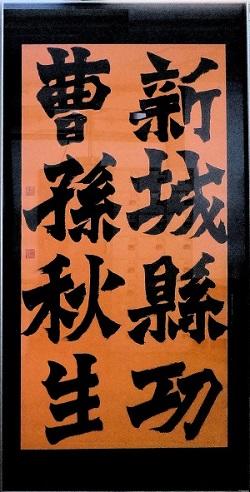 新城縣功
曹孫秋生